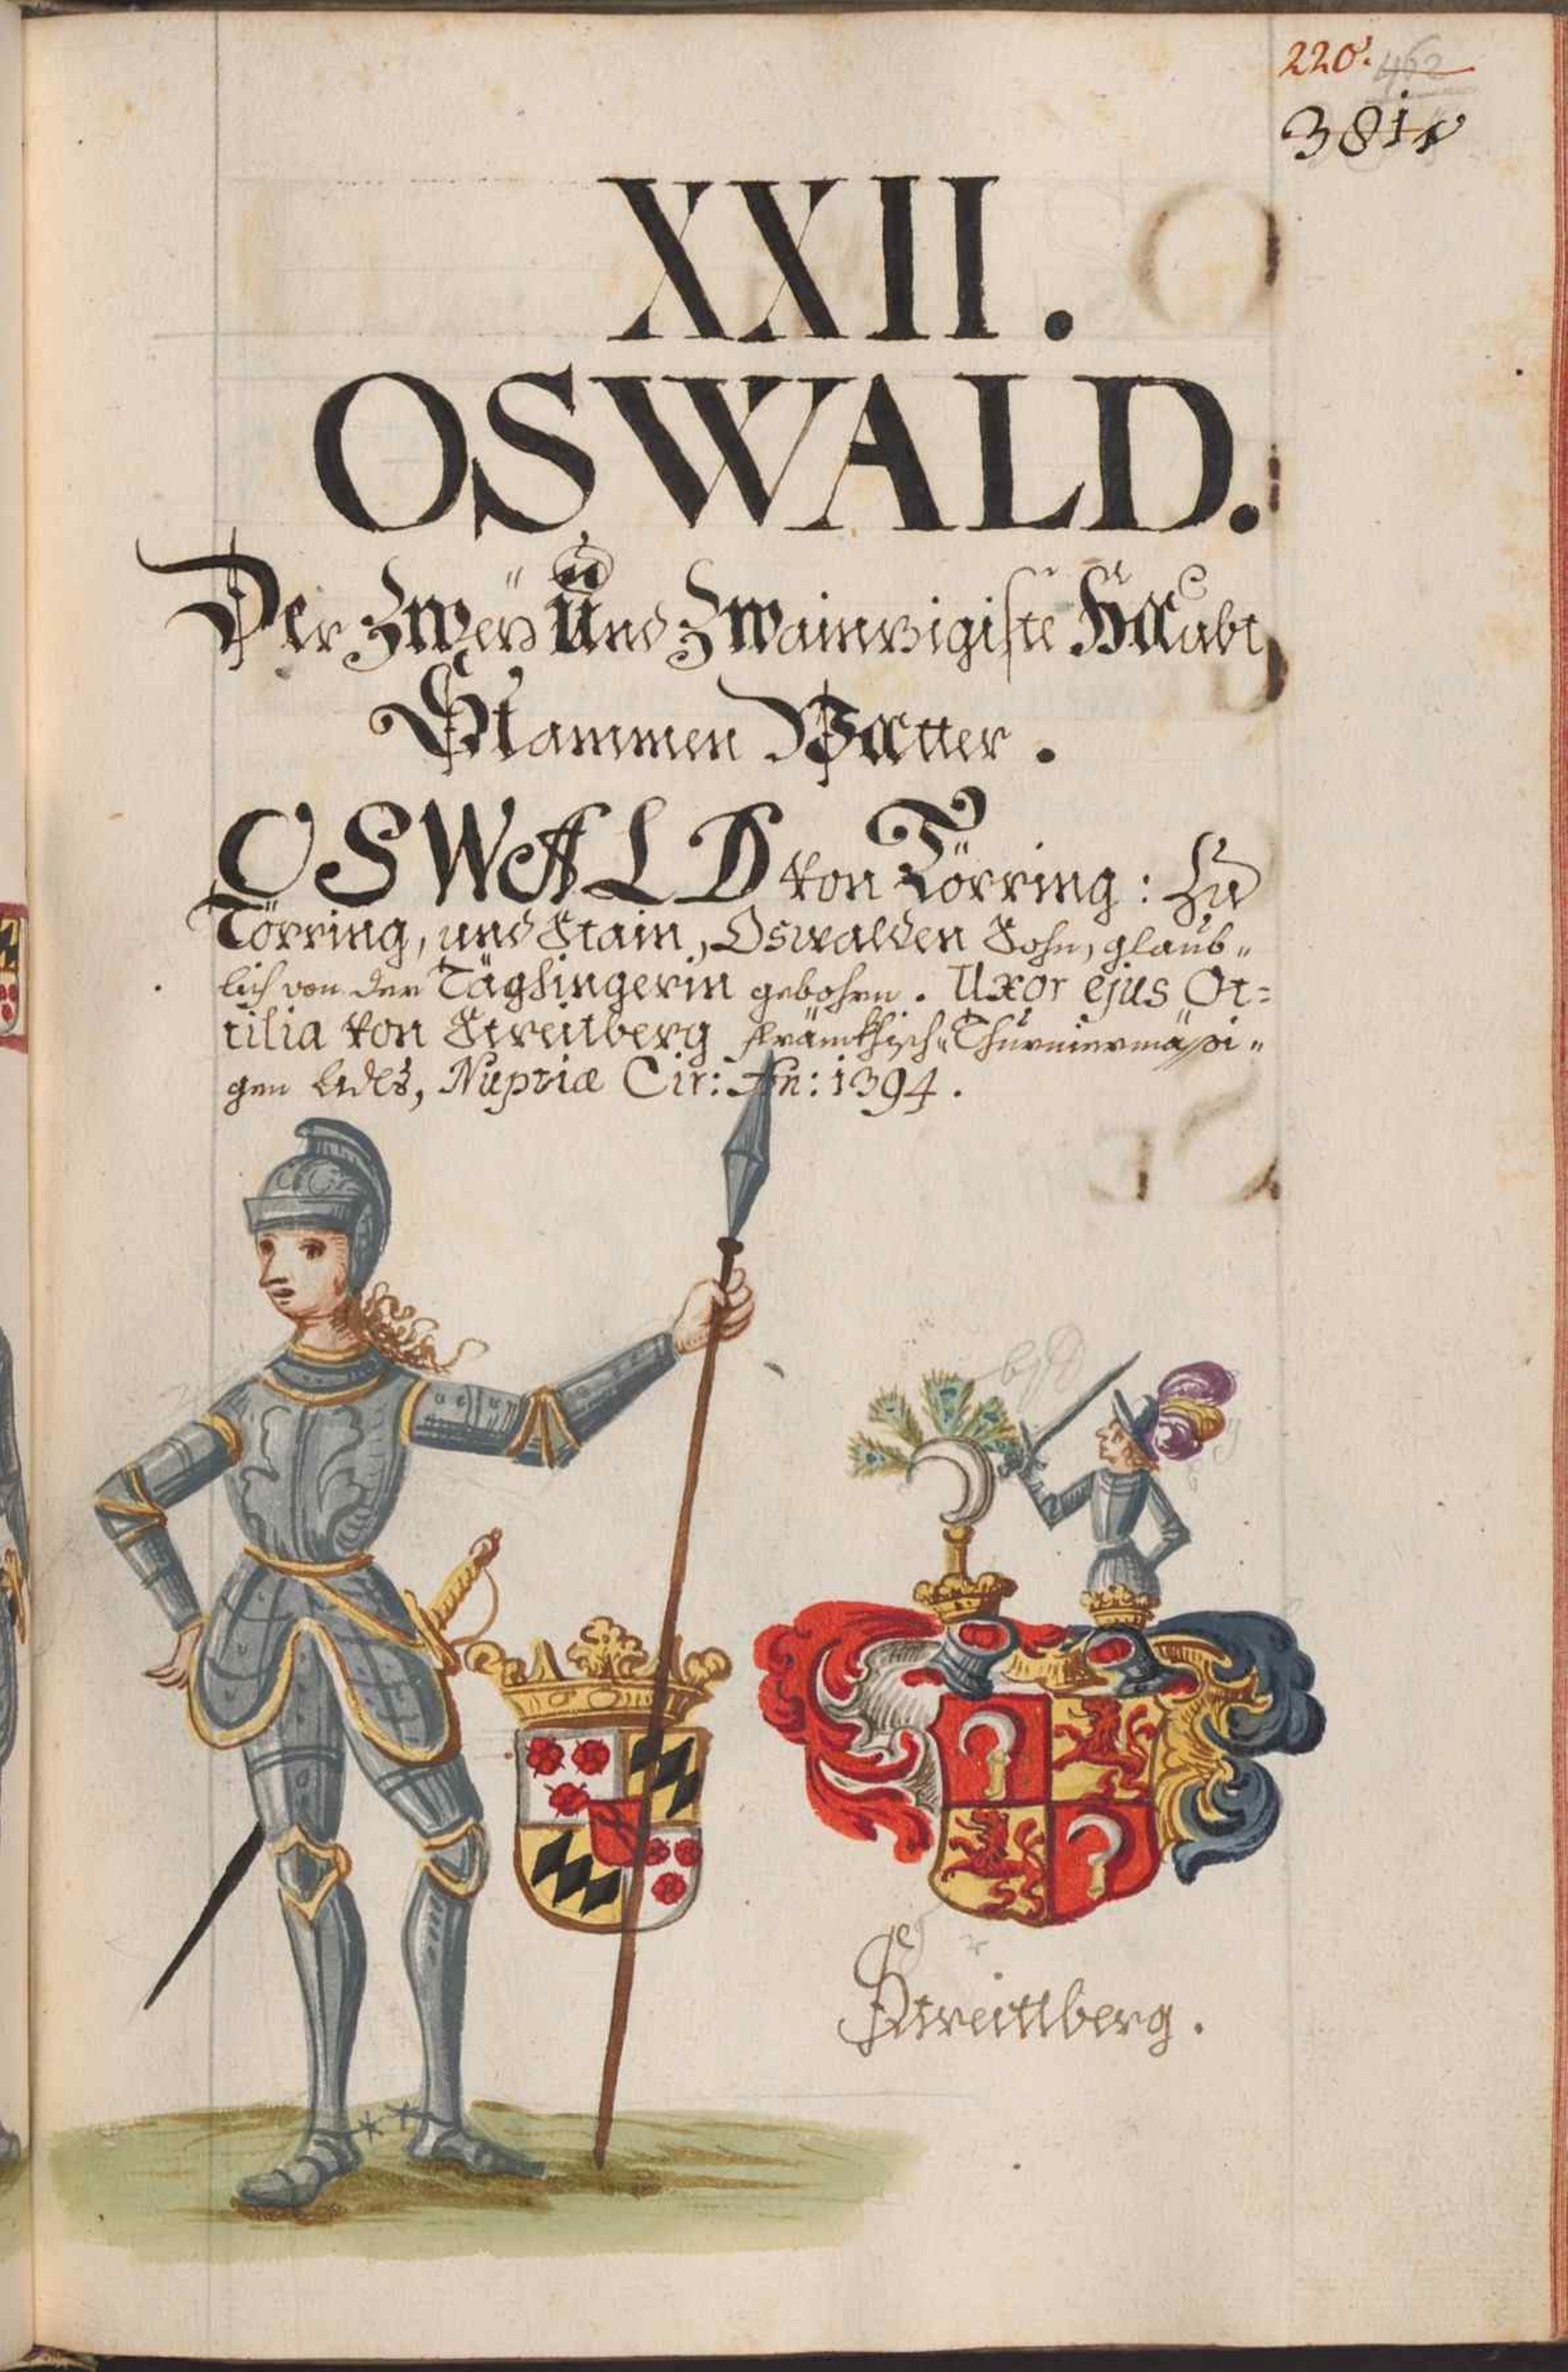 220. 462
381
XXII.
OSWALD.
Der Zweÿ Und Zwainzigiste Haubt
Stammen Vatter.
OSWALD von Törring: Zu
Törring, und Stain, Oswalden Sohn, glaub„
lich von der Täghingerin gebohrn. Uxor ejus Ot=
tilia von Streitberg fränkhisch„Thurniermäßi„
gen Adls, Nuptiæ Cir: An: 1394.
Streittberg.